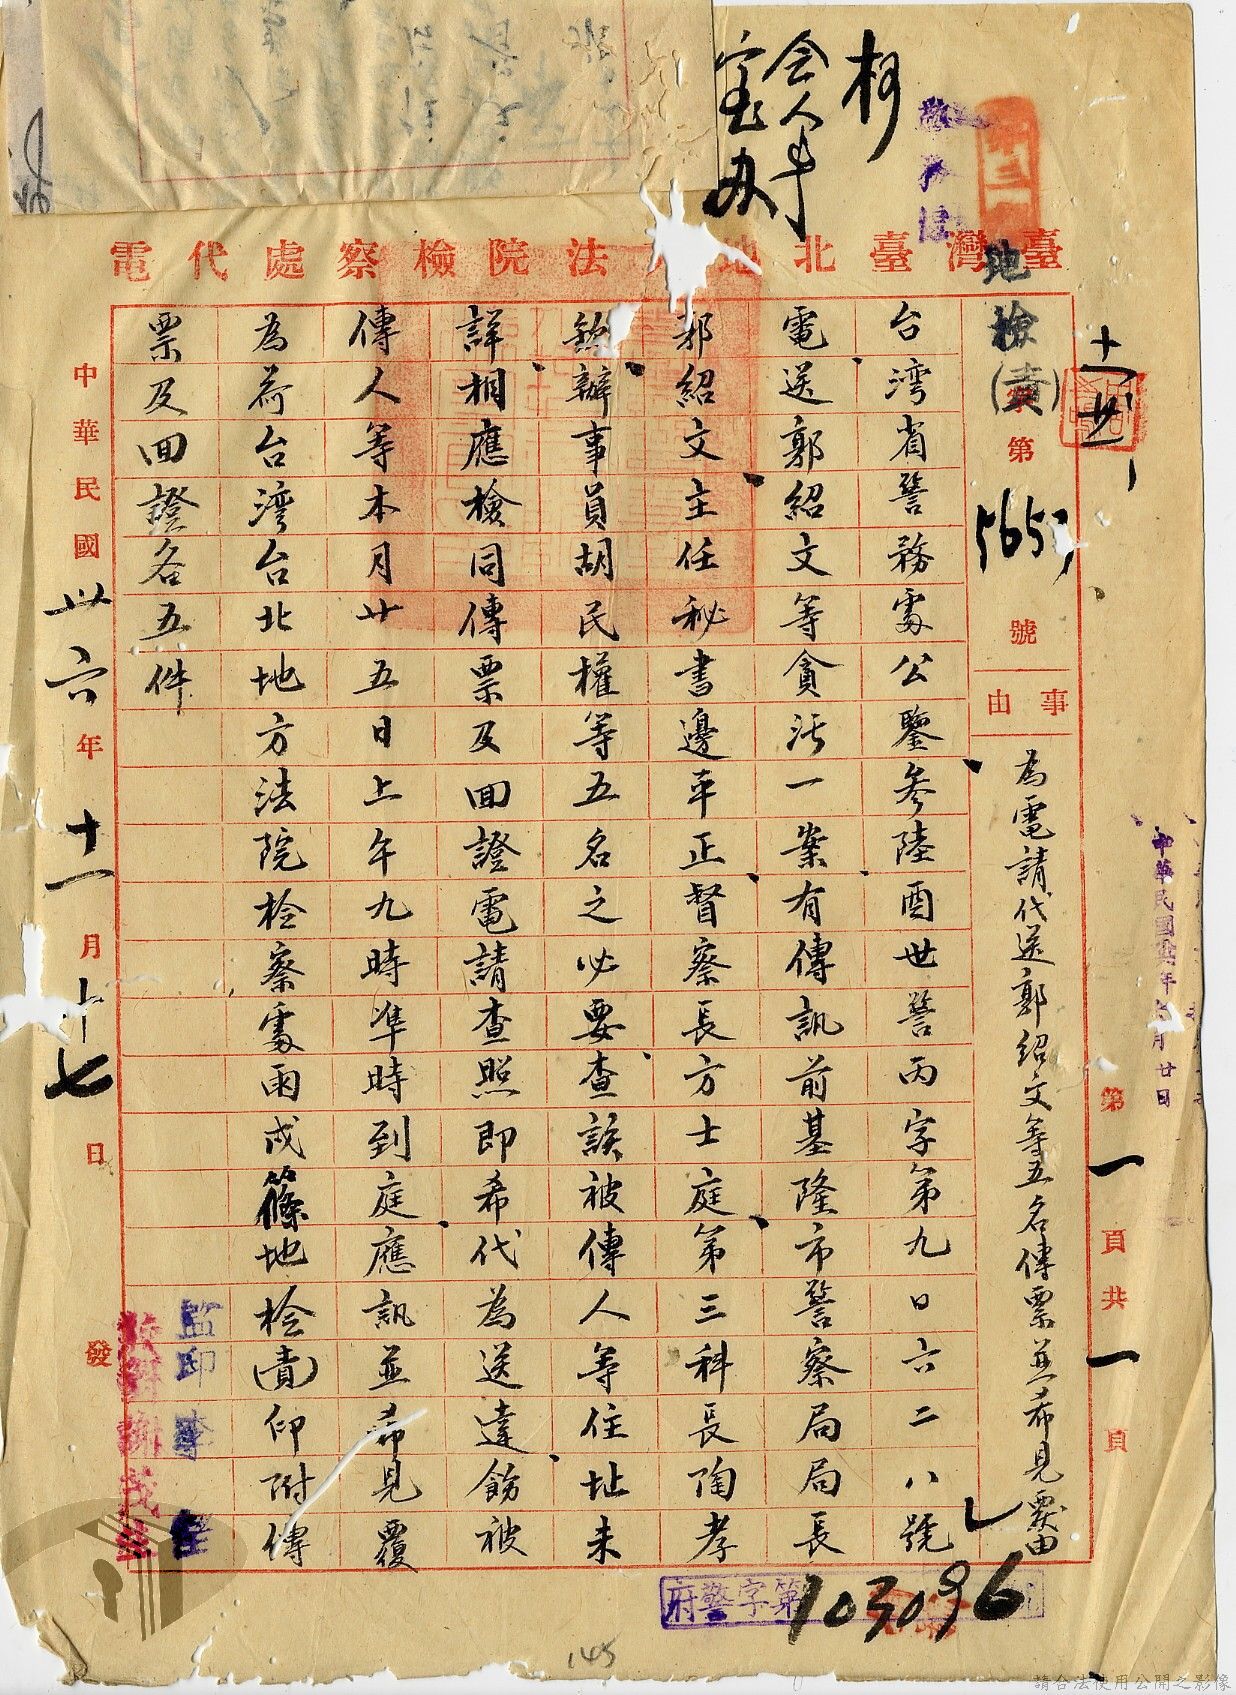 臺灣臺北地方法院檢察處代電
地檢(責)第5657號
事由
為電請代送郭紹文等五名傳票並希見覆由
台湾省警務處公鑒參陸酉世警丙字第九日六二八號
電送郭紹文等貪污一案有傳訊前基隆市警察局局長
郭紹文主任秘書邊平正督察長方士庭第三科長陶孝
辦事員胡民權等五名之必要查該被傳人等住址未
詳相應檢同傳票及回證電請查照即希代為送達飭被
傳人等本月廿五日上午九時準時到庭應訊並希見覆
為荷台湾台北地方法院檢察處雨戍篠地檢(責)印附傳
票及回證各五件
中華民國卅六年十一月十七日發
第一頁共一頁
監印李
府警字第103096
145
会人事室办
請合法使用公開之影像